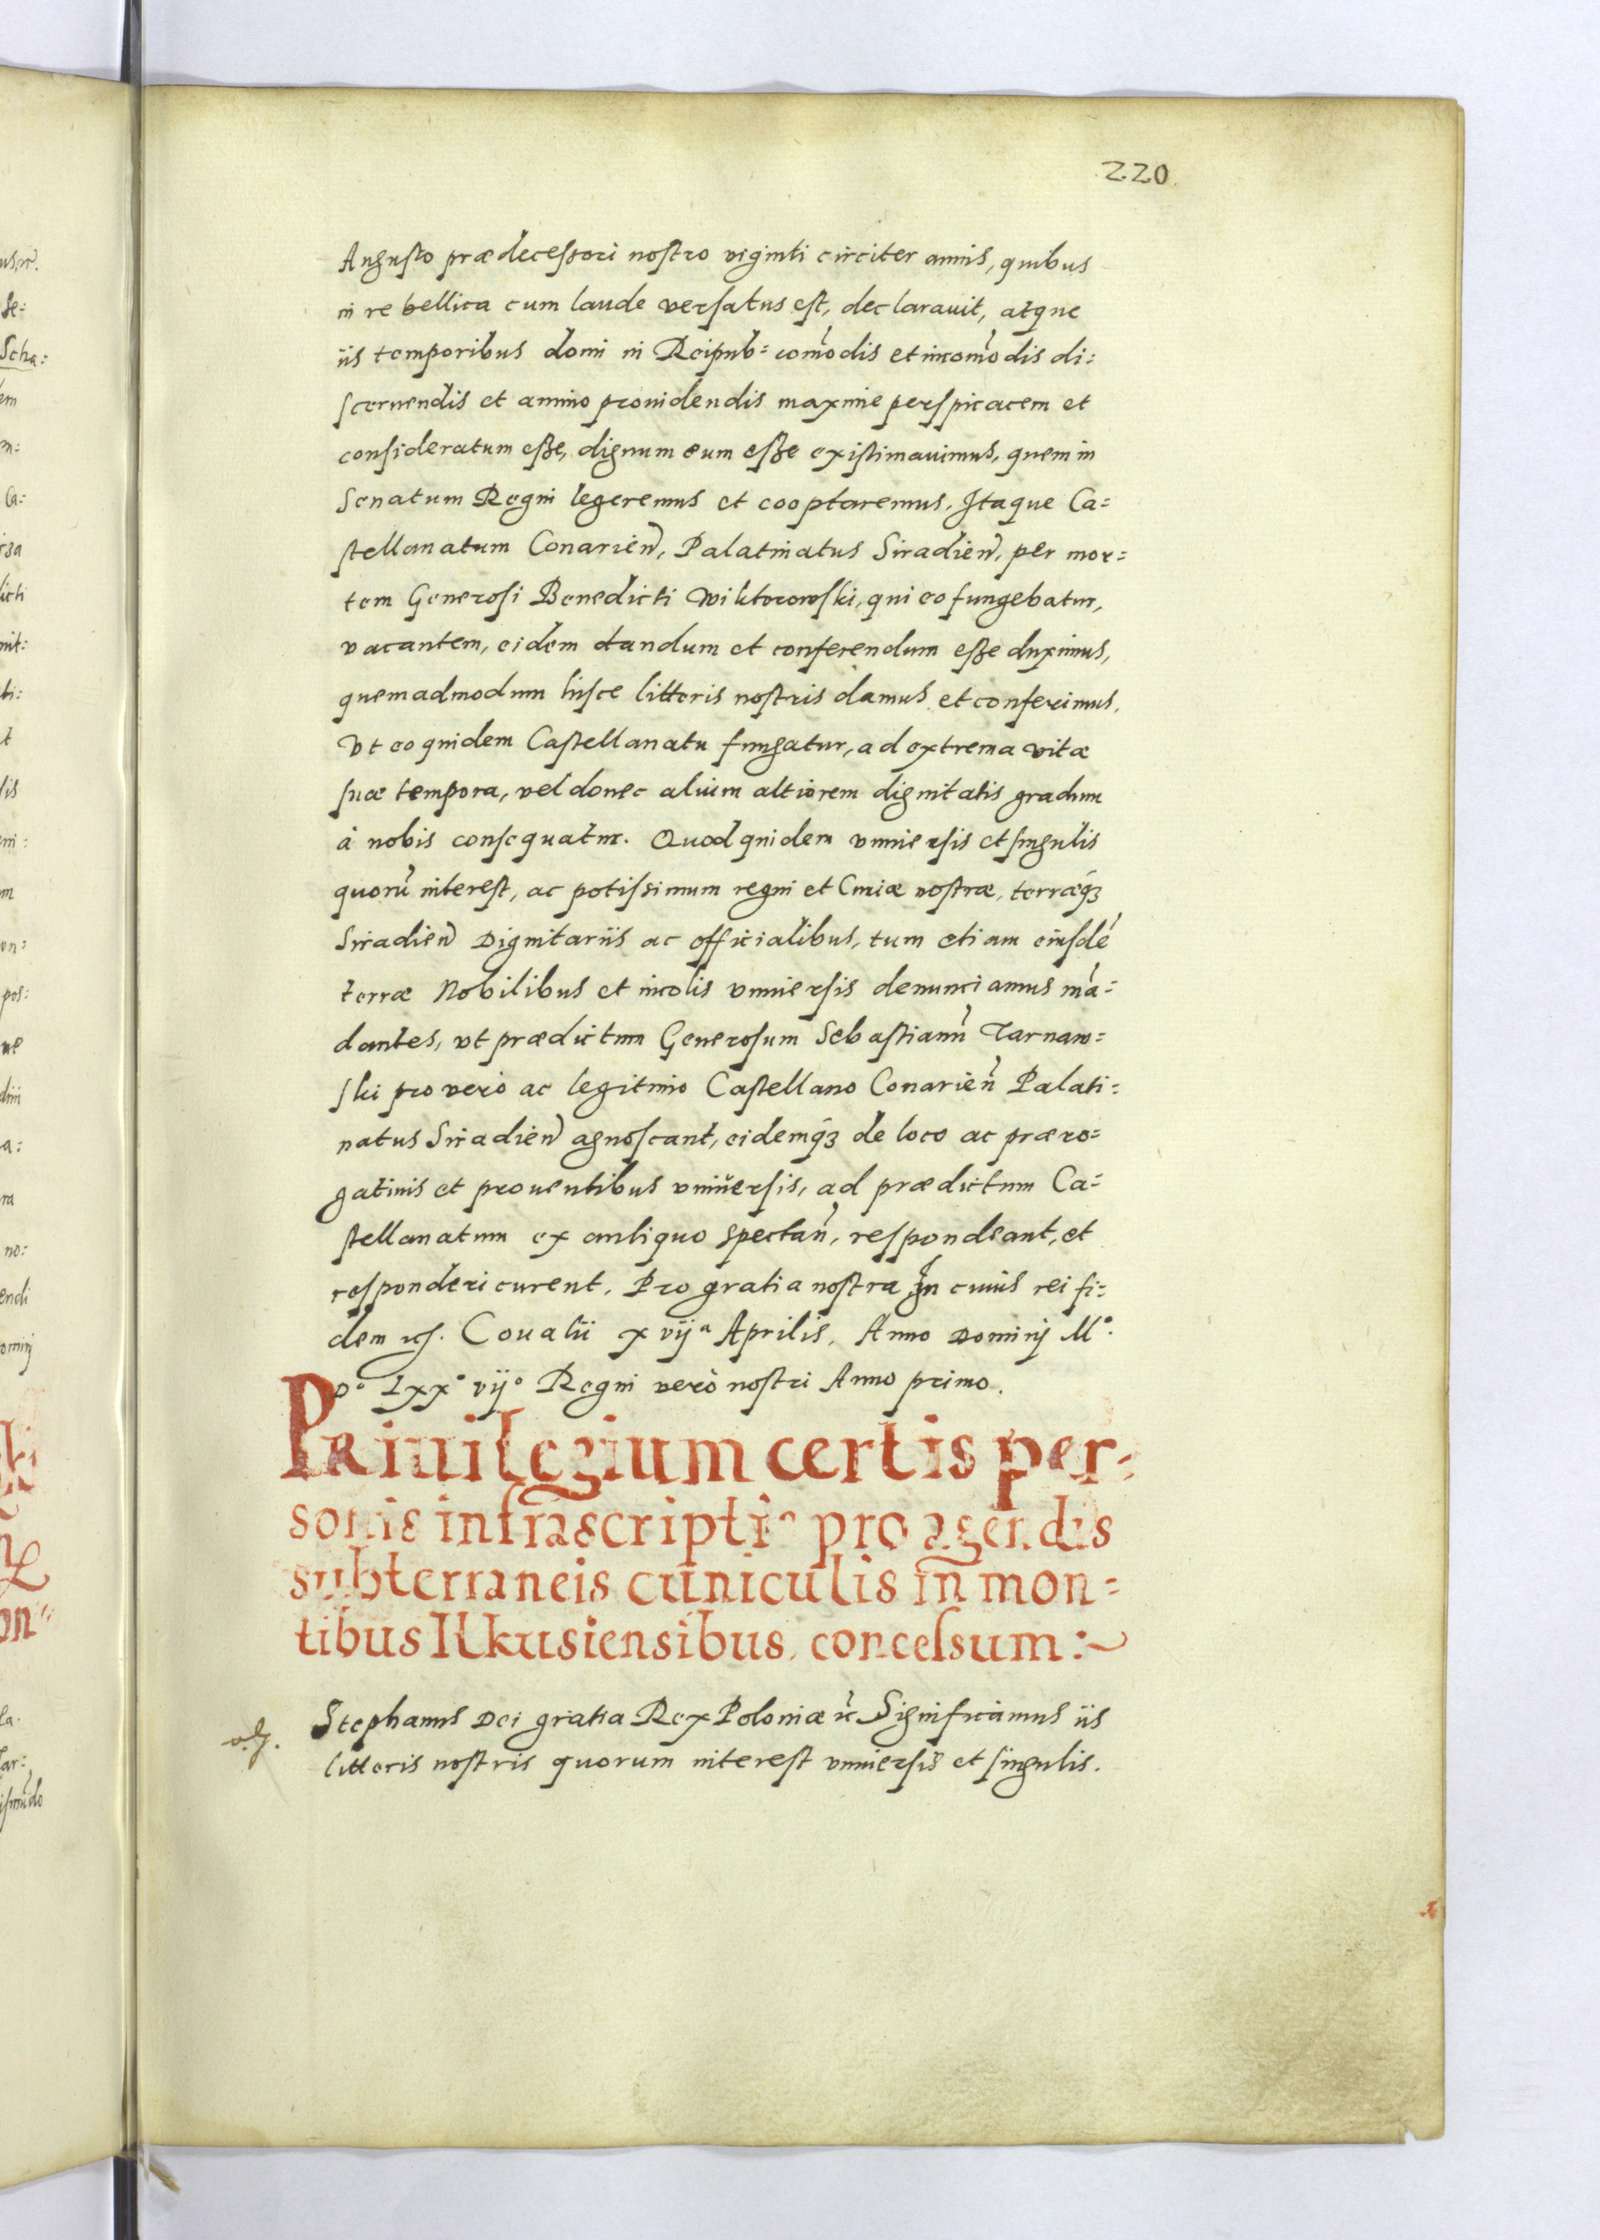 220
Augusto prædecessori nostro viginti circiter annis, quibus
in re bellica cum laude versatus est, declarauit, atque
iis temporibus domi in Reipub= com̃odis et incom̃odis di:
scernendis et animo prouidendis maxime perspicacem et
consideratum eße, dignum eum eße existimauimus, quem in
Senatum Regni legeremus et cooptaremus. Itaque Ca=
stellanatum Conarieñ, Palatinatus Siradieñ, per mor=
tem Generosi Benedicti Wiktorowski, qui eo fungebatur,
vacantem, eidem dandum et conferendum eße duximus,
quemadmodum hisce litteris nostris damus et conferimus,
Vt eo quidem Castellanatu fungatur, ad extrema vitæ
suæ tempora, vel donec alium altiorem dignitatis gradum
à nobis consequatur. Quod quidem vniuersis et singulis
quorũ interest, ac potissimum regni et Curiæ nostræ, terræq́ꝫ
Siradieñ Dignitariis ac officialibus, tum etiam eiusdẽ
terræ Nobilibus et incolis vniuersis denunciamus mã=
dantes, vt prædictum Generosum Sebastianũ Tarnaw=
ski pro vero ac legitimo Castellano Conarieñ Palati:
natus Siradieñ agnoscant, eidemq́ꝫ de loco ac præro=
gatiuis et prouentibus vniuersis, ad prædictum Ca=
stellanatum ex antiquo spectañ, respondeant, et
responderi curent. Pro gratia nostra In cuius rei fi:
dem ⁊cꝭ. Coualii xvijᵃ Aprilis. Anno Dominj Mº.
Dº Lxxº vijº Regni verò nostri Anno primo.
Priuilegium certis per-
sonis infrascriptis pro agendis
subterraneis cuniculis in mon=
tibus Ilkusiensibus concessum :~
Stephanus Dei gratia Rex Poloniæ ⁊c̃ Significamus iis
litteris nostris quorum interest vniuersis et singulis.